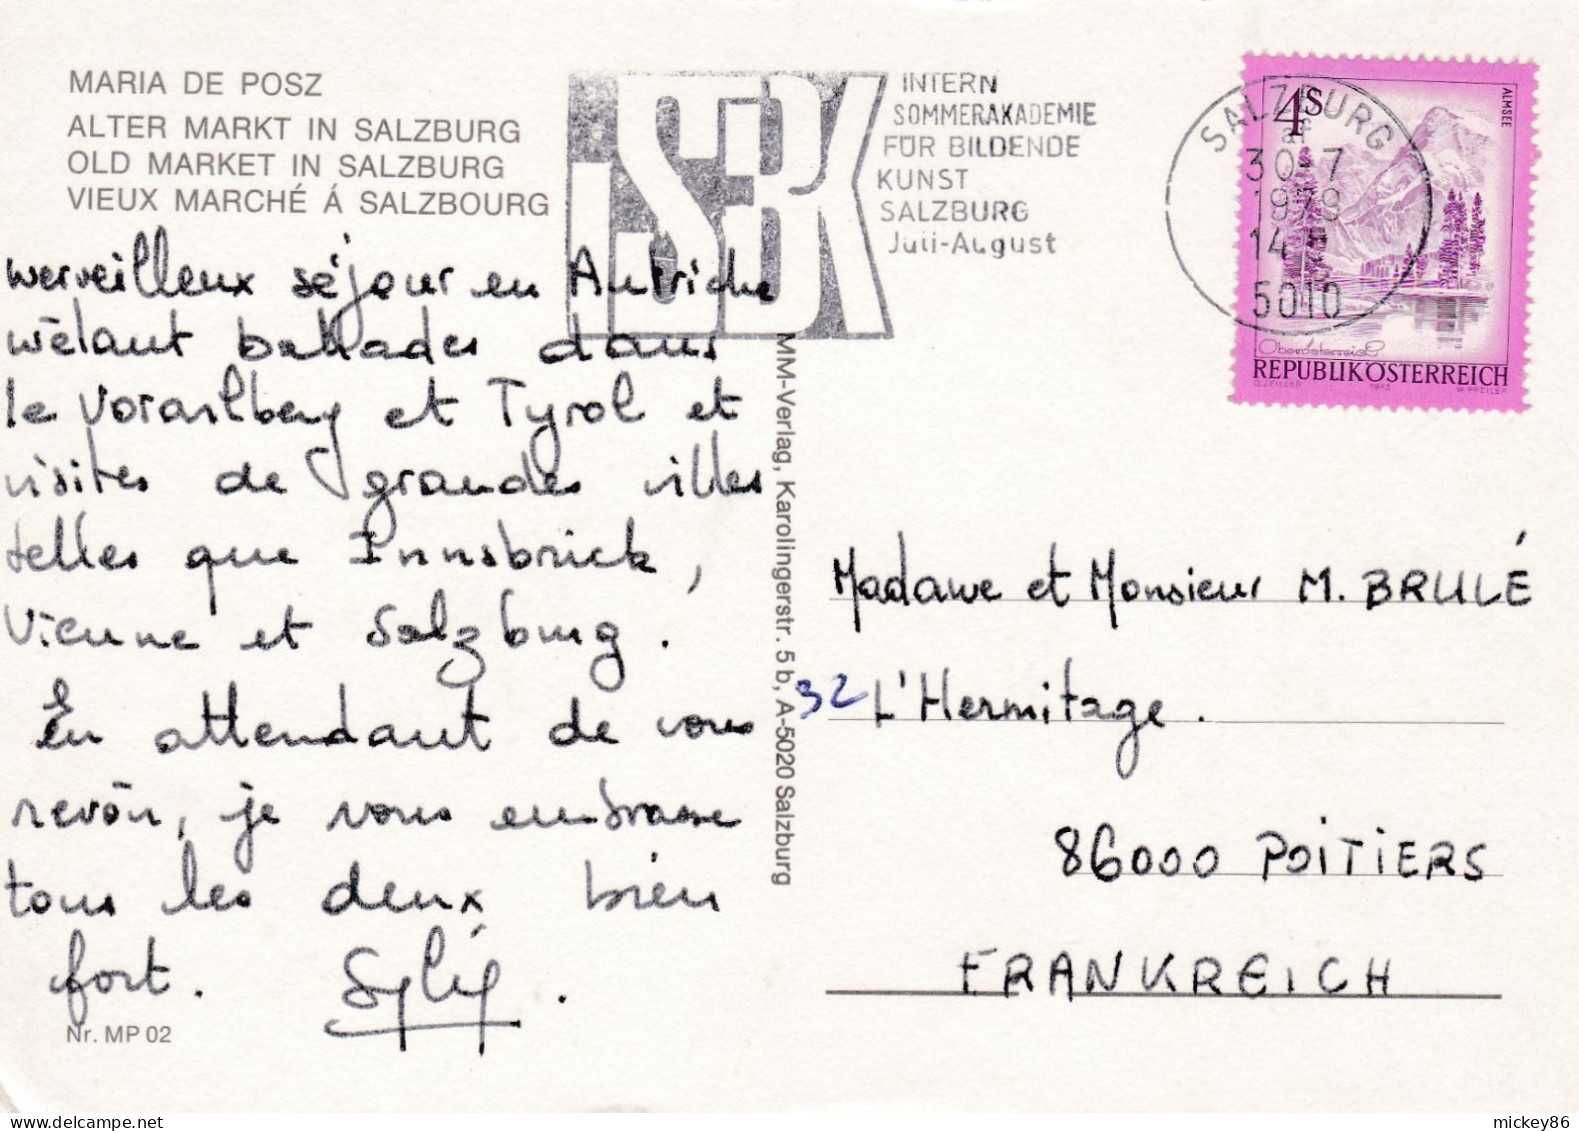 MARIA DE POSZ
ALTER MARKT IN SALZBURG
OLD MARKET IN SALZBURG
VIEUX MARCHÉ Á SALZBOURG
SBK
INTERN
SOMMERAKADEMIE
FÜR BILDENDE
KUNST
SALZBURG
Juli-August
SALZBURG
30-7
1979
14
5010
4S
ALMSEE
Oberösterreich
REPUBLIK ÖSTERREICH
1973
merveilleux séjour en Autriche
mêlant ballades dans
le Vorarlberg et Tyrol et
visites de grandes villes
telles que Innsbrick,
Vienne et Salzburg.
En attendant de vous
revoir, je vous embrasse
tous les deux bien
fort.
Nr. MP 02
MM-Verlag, Karolingerstr. 5 b, A-5020 Salzburg
Madame et Monsieur M. BRULÉ
32 L'Hermitage.
86000 POITIERS
FRANKREICH
mickey86